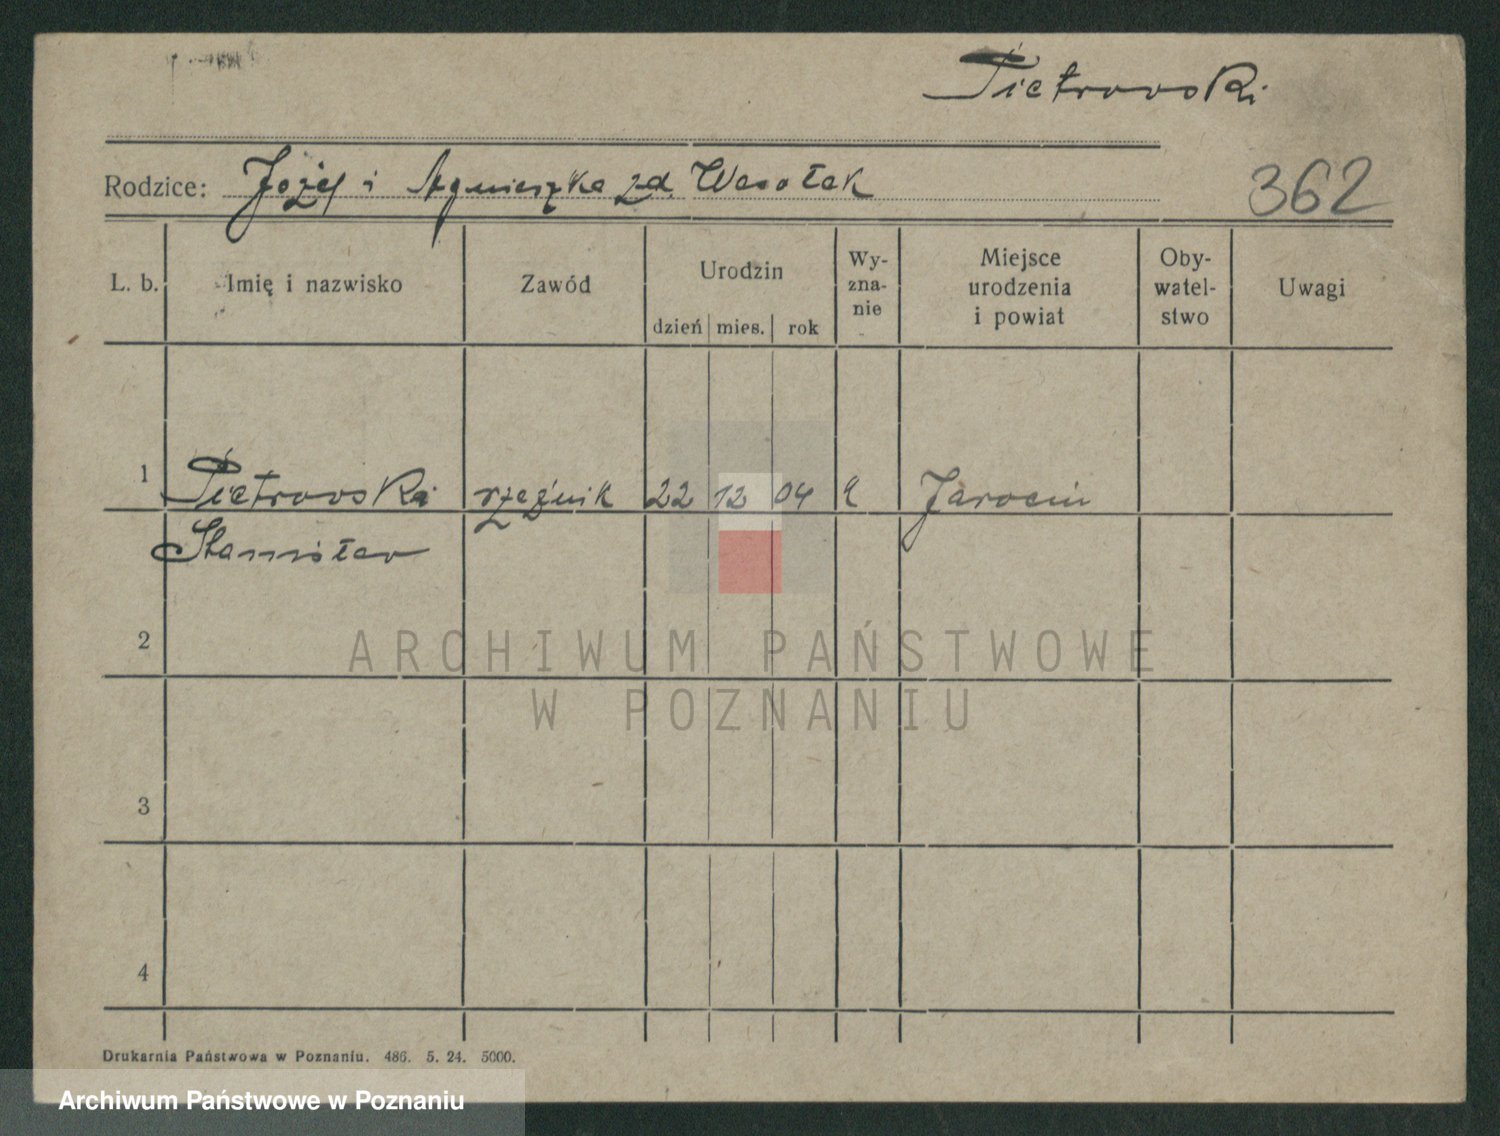 Pietrowski
Rodzice: Józef i Agnieszka zd. Wesołek
362
L. b. Imię i nazwisko Zawód Urodzin Wy-zna-nie Miejsce urodzenia i powiat Oby-watel-stwo Uwagi
dzień mies. rok
1 Pietrowski rzeźnik 22 12 04 k Jarocin
Stanisław
2
ARCHIWUM PAŃSTWOWE
W POZNANIU
3
4
Drukarnia Państwowa w Poznaniu. 486. 5. 24. 5000.
Archiwum Państwowe w Poznaniu